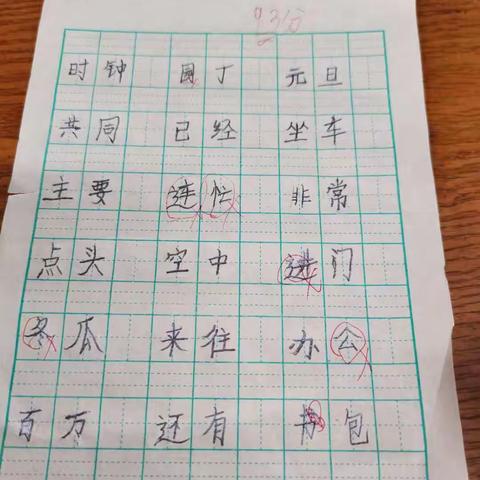 93分
时钟 园丁 元旦
共同 已经 坐车
主要 连忙 非常
点头 空中 进门
冬瓜 来往 办公
百万 还有 书包